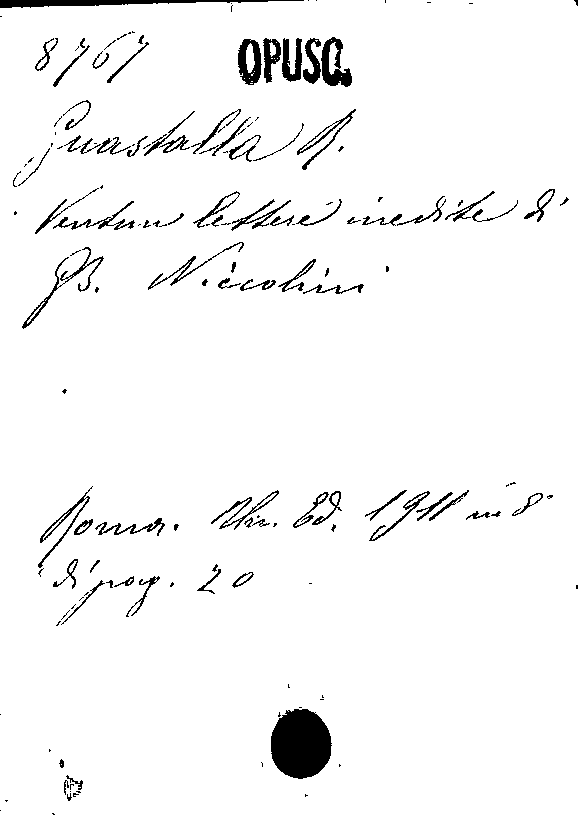 8767 OPUSC.
Guastalla R.
Ventun lettere inedite di
GB. Niccolini
Roma. Ed. 1911 in 8°
di pag. 20